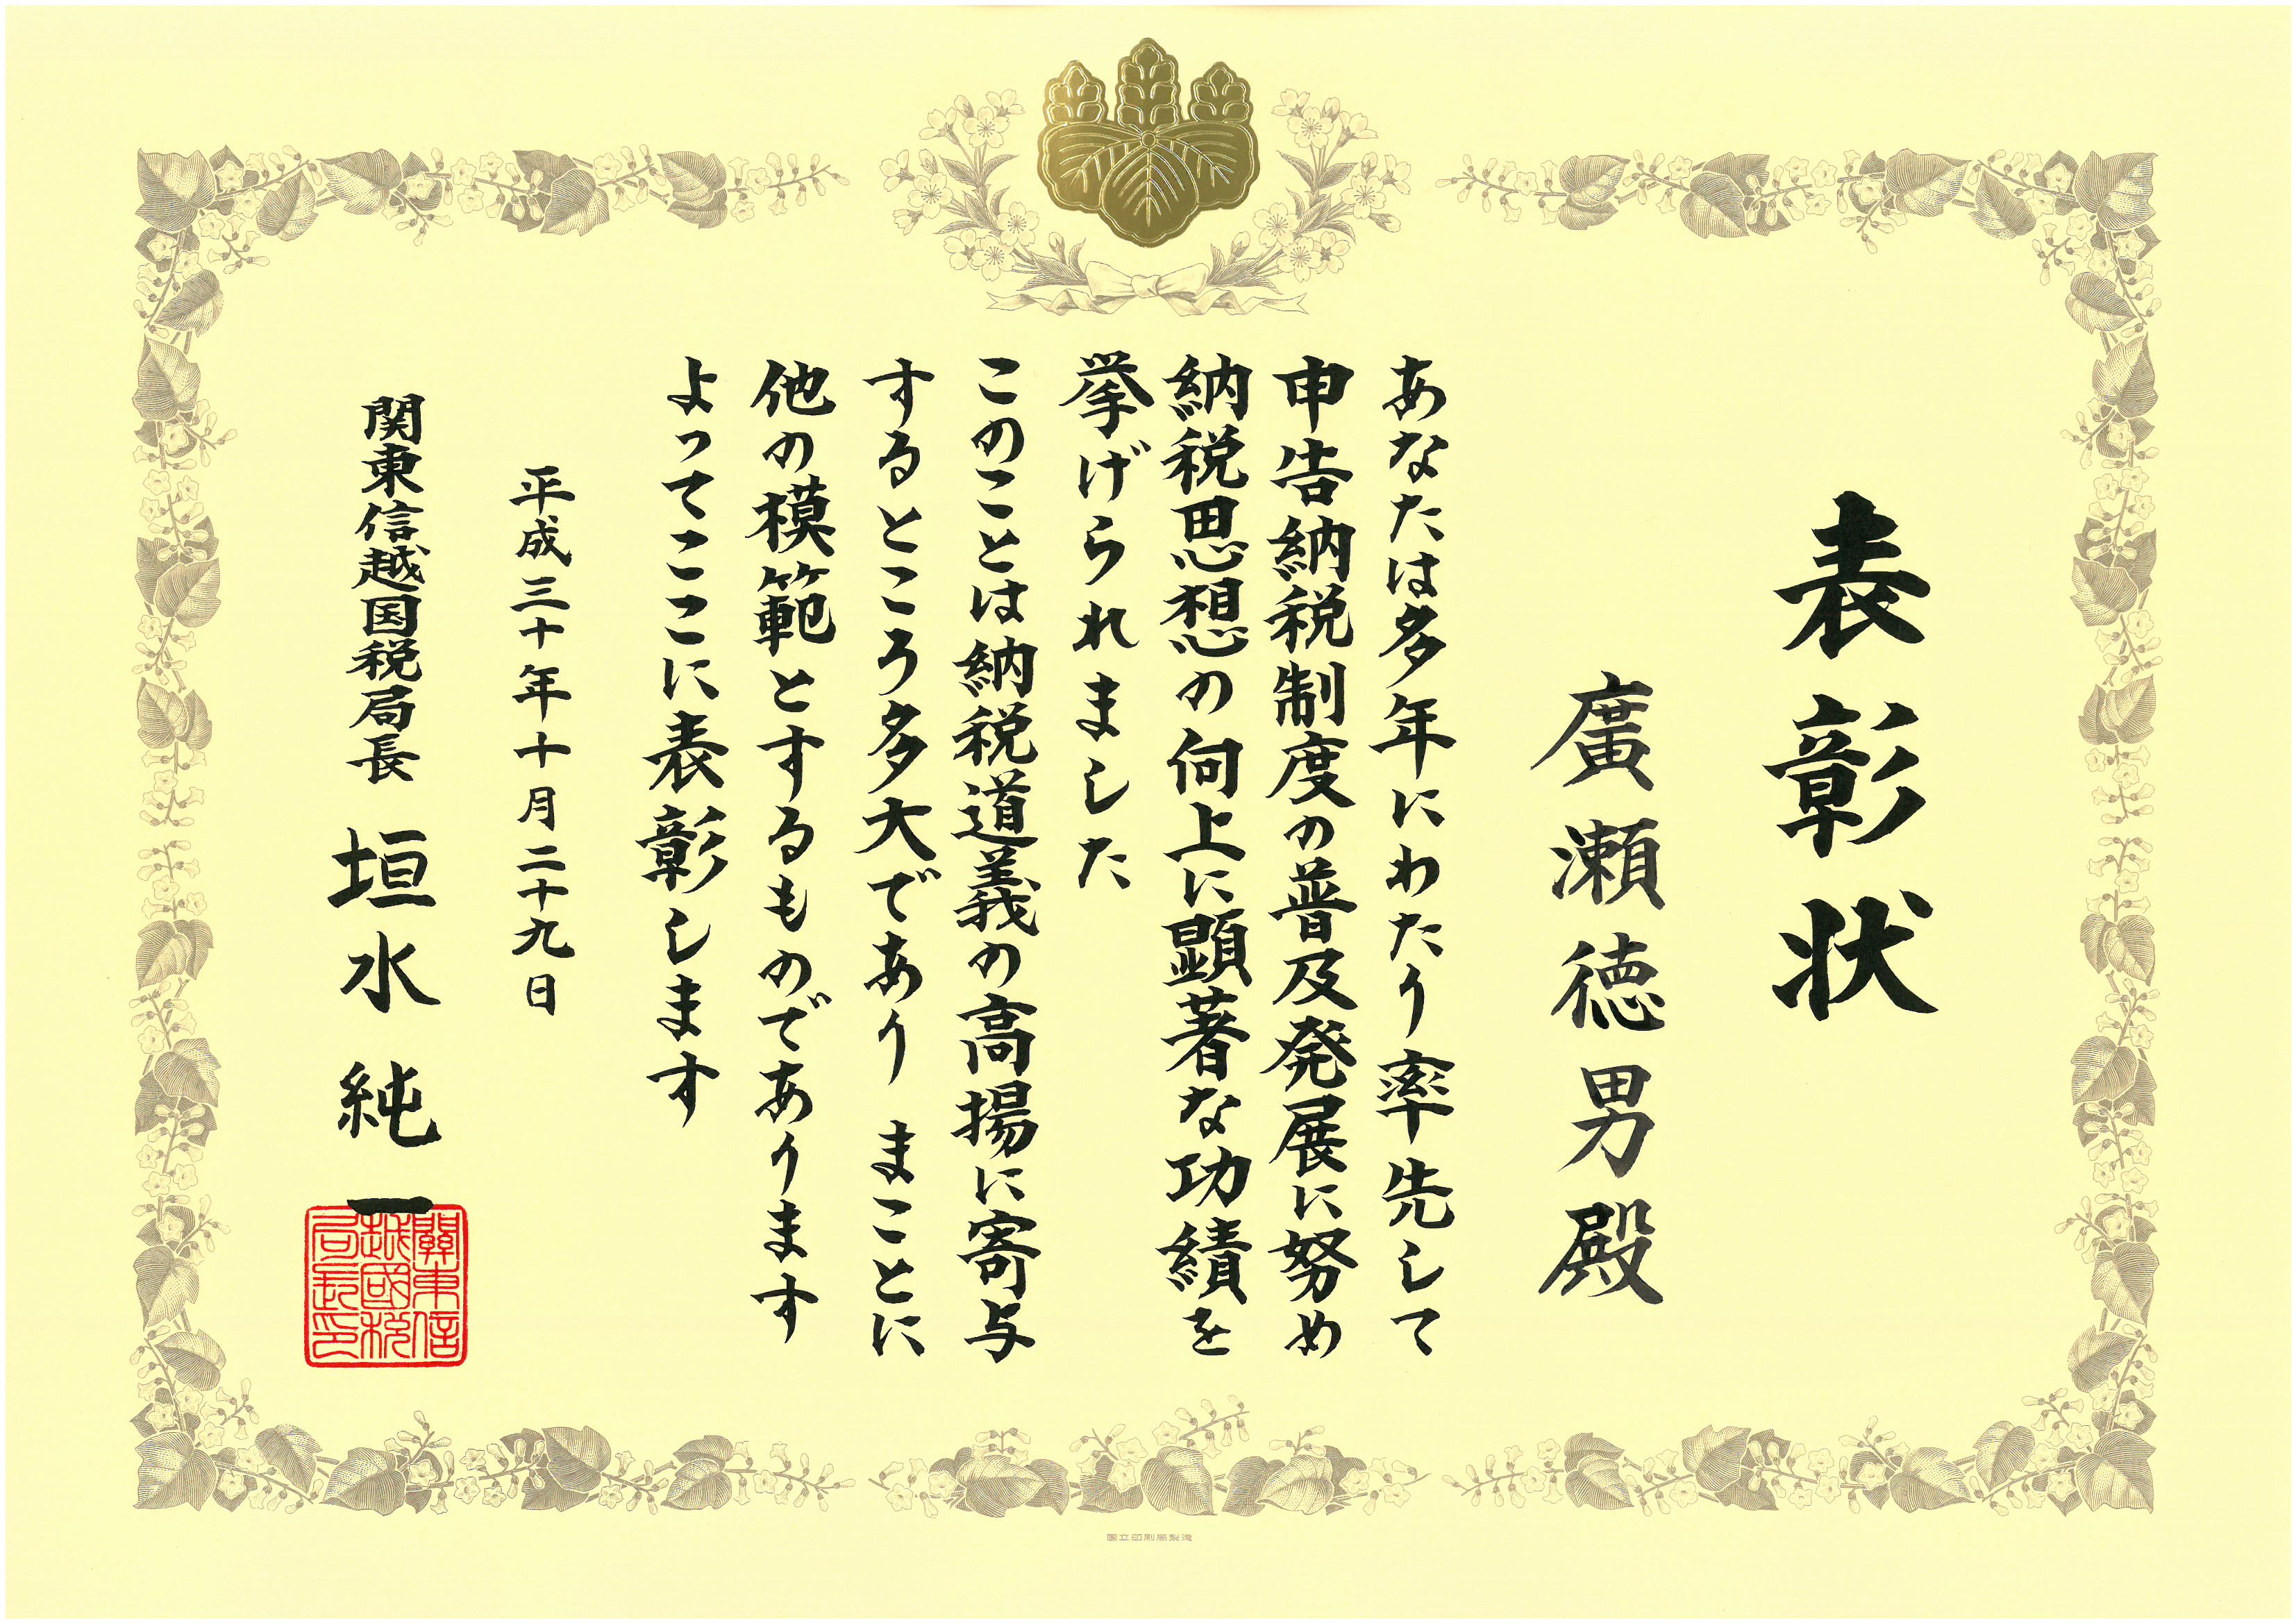 表彰状
廣瀬徳男殿
あなたは多年にわたり率先して
申告納税制度の普及発展に努め
納税思想の向上に顕著な功績を
挙げられました
このことは納税道義の高揚に寄与
するところ多大であり まことに
他の模範とするものであります
よってここに表彰します
平成三十年十月二十九日
関東信越国税局長 垣水純一
關東信
越國税
局長印
国立印刷局製造